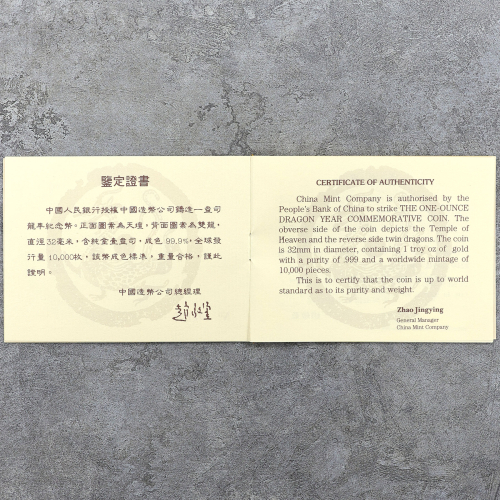 鑒定證書
中國人民銀行授權中國造幣公司鑄造一盎司
龍年紀念幣。正面圖案為天壇，背面圖案為雙龍，
直徑32毫米，含純金壹盎司，成色 99.9%，全球發
行量 10,000枚。該幣成色標準，重量合格，謹此
證明。
中國造幣公司總經理
CERTIFICATE OF AUTHENTICITY
China Mint Company is authorised by the
People's Bank of China to strike THE ONE-OUNCE
DRAGON YEAR COMMEMORATIVE COIN. The
obverse side of the coin depicts the Temple of
Heaven and the reverse side twin dragons. The coin
is 32mm in diameter, containing 1 troy oz of gold
with a purity of .999 and a worldwide mintage of
10,000 pieces.
This is to certify that the coin is up to world
standard as to its purity and weight.
Zhao Jingying
General Manager
China Mint Company